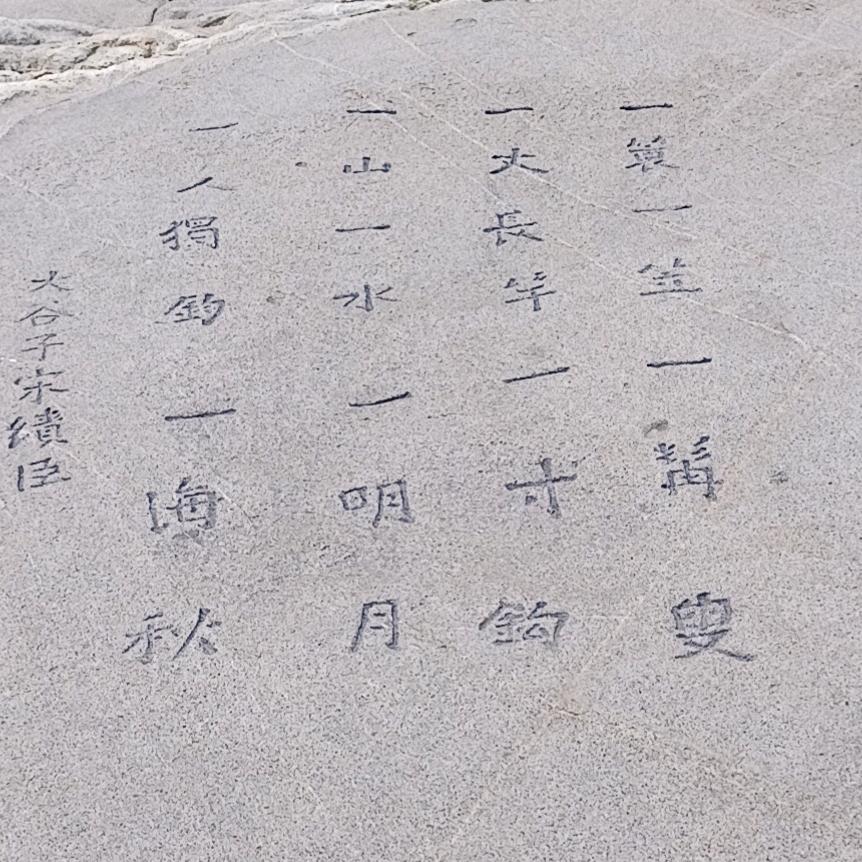 一簑一笠一髯叟
一丈長竿一寸鈎
一山一水一明月
一人獨釣一海秋
火谷子宋繢臣